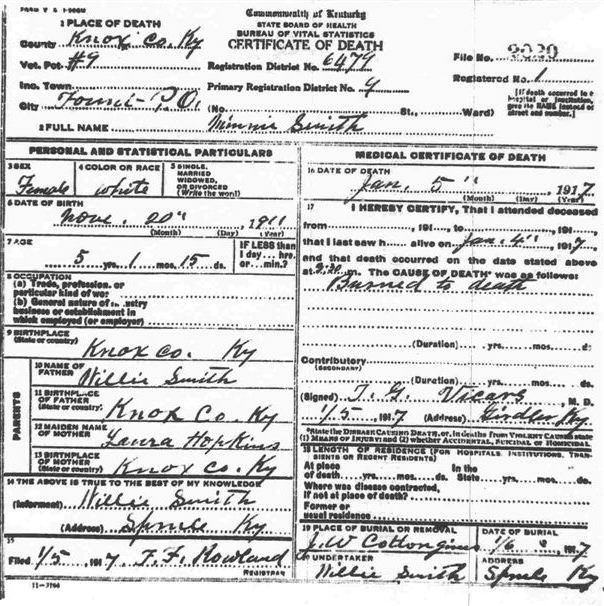 Commonwealth of Kentucky
STATE BOARD OF HEALTH
BUREAU OF VITAL STATISTICS
CERTIFICATE OF DEATH
1 PLACE OF DEATH
County Knox Co. Ky
Vot. Pct. #9
Inc. Town
City P.O.
Registration District No. 6479
Primary Registration District No. 9
(No. St., Ward)
File No. 2020
Registered No. 1
[If death occurred in a Hospital or Institution, give its NAME instead of street and number.]
2 FULL NAME Minnie Smith
PERSONAL AND STATISTICAL PARTICULARS
3 SEX
Female
4 COLOR OR RACE
White
5 SINGLE, MARRIED WIDOWED, OR DIVORCED
(Write the word)
6 DATE OF BIRTH
Nove. 20" 1911
(Month) (Day) (Year)
7 AGE
5 yrs. 1 mos. 15 ds.
IF LESS than 1 day ... hrs. or ... min.?
8 OCCUPATION
(a) Trade, profession, or particular kind of work
(b) General nature of industry business or establishment in which employed (or employer)
9 BIRTHPLACE
(State or country)
Knox Co. Ky
PARENTS
10 NAME OF FATHER
Willie Smith
11 BIRTHPLACE OF FATHER
(State or country)
Knox Co. Ky
12 MAIDEN NAME OF MOTHER
Laura Hopkins
13 BIRTHPLACE OF MOTHER
(State or country)
Knox Co. Ky
14 THE ABOVE IS TRUE TO THE BEST OF MY KNOWLEDGE
(Informant) Willie Smith
(Address) Ky
15
Filed 1/5 1917 F. F. Rowland
REGISTRAR
11-3184
MEDICAL CERTIFICATE OF DEATH
16 DATE OF DEATH
Jan. 5" 1917
(Month) (Day) (Year)
17 I HEREBY CERTIFY, That I attended deceased
from 191 , to 191 ,
that I last saw h alive on Jan. 4" 1917
and that death occurred on the date stated above
at m. The CAUSE OF DEATH* was as follows:
Burned to death
(Duration) yrs. mos. ds.
Contributory
(SECONDARY)
(Duration) yrs. mos. ds.
(Signed) T. G. Vicars, M. D.
1/5 1917 (Address) Girdler Ky.
*State the DISEASE CAUSING DEATH, or, in deaths from VIOLENT CAUSES state (1) MEANS OF INJURY; and (2) whether ACCIDENTAL, SUICIDAL or HOMICIDAL
18 LENGTH OF RESIDENCE (FOR HOSPITALS, INSTITUTIONS, TRANSIENTS OR RECENT RESIDENTS)
At place of death yrs. mos. ds.
In the State yrs. mos. ds.
Where was disease contracted, if not at place of death?
Former or usual residence
19 PLACE OF BURIAL OR REMOVAL
J. W. Cottongims
DATE OF BURIAL
1/6 1917
20 UNDERTAKER
Willie Smith
ADDRESS
Ky